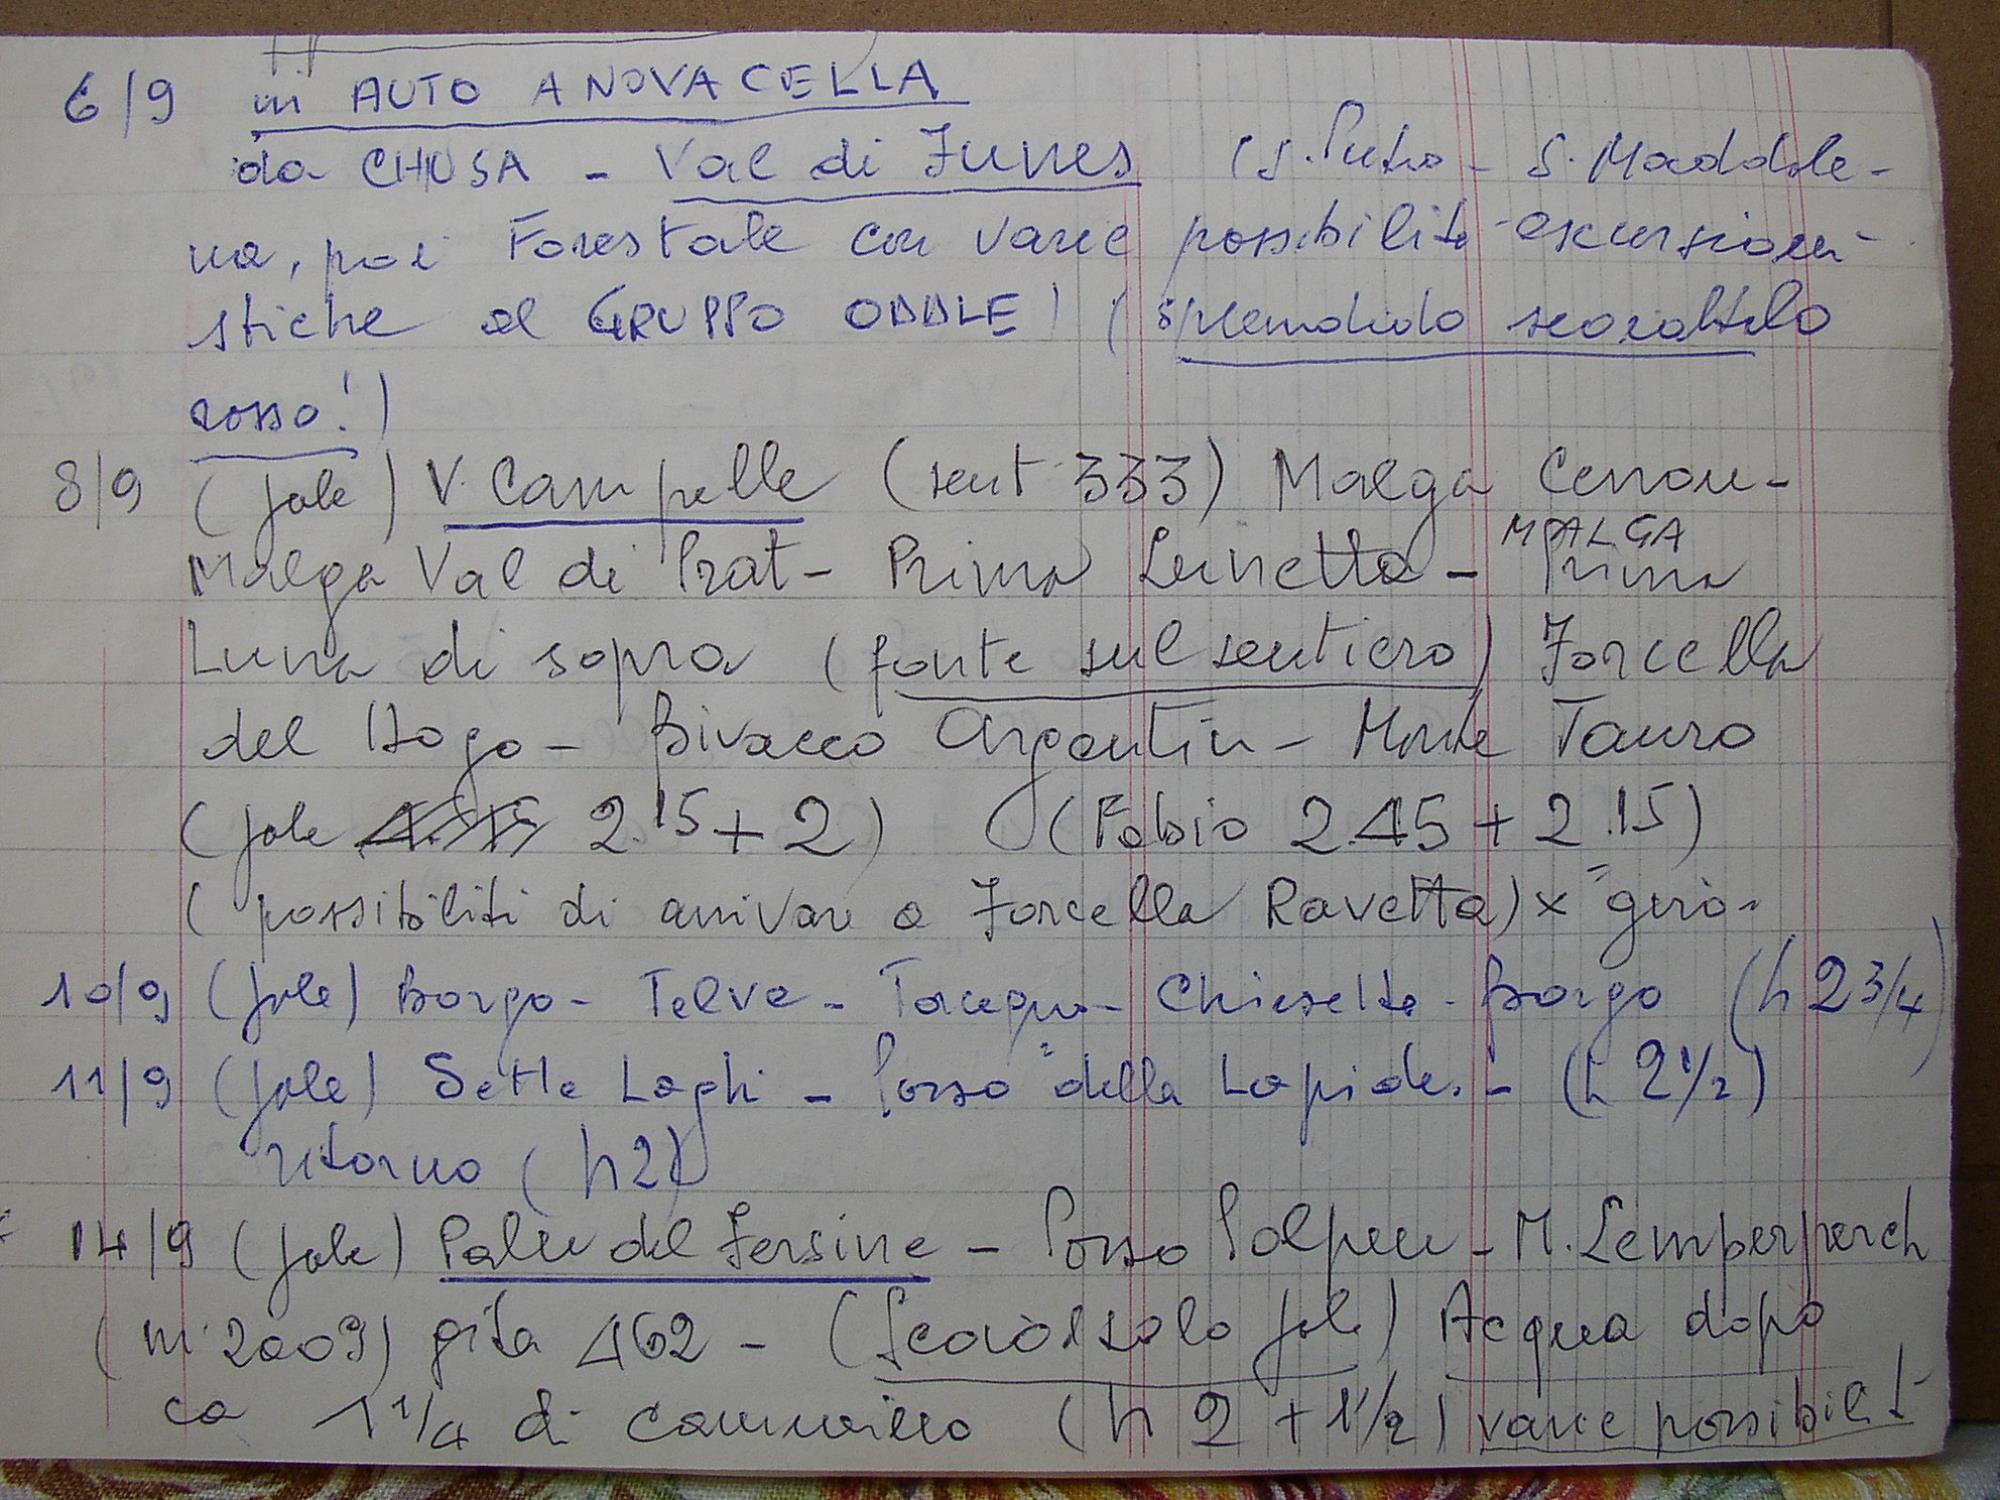 6/9 in AUTO A NOVACELLA
da CHIUSA - Val di Funes (S. Pietro - S. Maddale-
na, poi Forestale con varie possibilità escursioni-
stiche al GRUPPO ODDLE) (splendido scoiattolo
rosso!)
8/9 (Jole) V. Campelle (sent 333) Malga Cenon-
Malga Val di Prat - Prima Lunetta - MALGA Prima
Luna di sopra (fonte sul sentiero) Forcella
del Dogo - Bivacco Argentin - Monte Tauro
(Jole 2.15 + 2) (Fabio 2.45 + 2.15)
(possibilità di arrivare a Forcella Ravetta) x "giro"
10/9 (Jole) Borgo - Telve - Torcegno - Chiesetta - Borgo (h 2 3/4)
11/9 (Jole) Sette Laghi - Passo "della Lapide" - (h 2 1/2)
ritorno (h 2)
14/9 (Jole) Palù del Fersina - Passo Polpen - M. Lemperperch
(m 2009) gita 462 - (solo Jole) Acqua dopo
ca 1 1/4 di cammino (h 2 + 1 1/2) varie possibilit